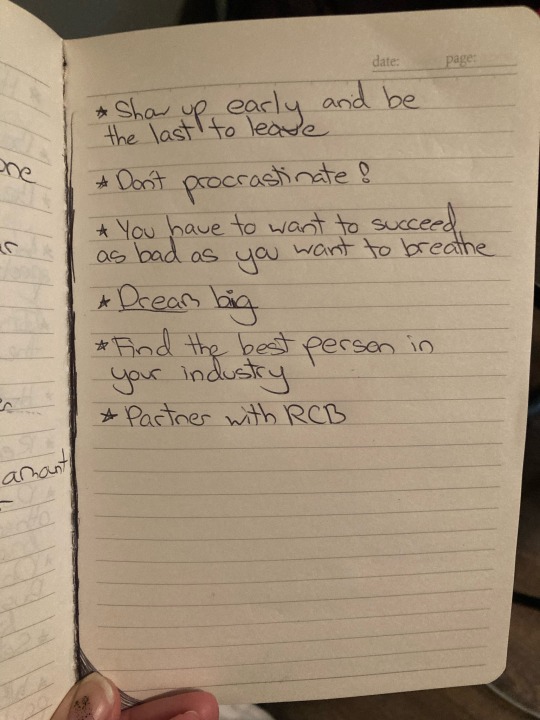 one
amount
date: page:
* Show up early and be
the last to leave
* Don't procrastinate !
* You have to want to succeed
as bad as you want to breathe
* Dream big
* Find the best person in
your industry
* Partner with RCB